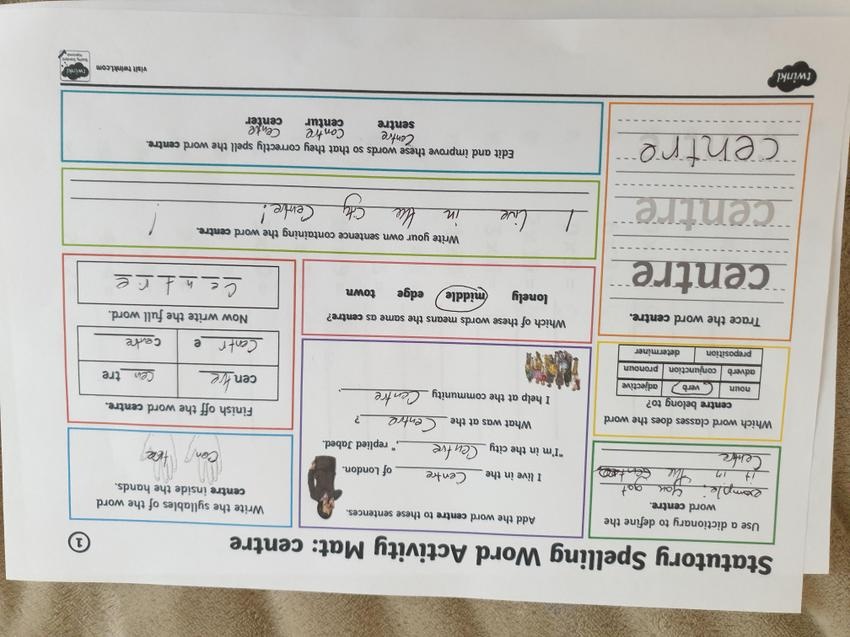 Statutory Spelling Word Activity Mat: centre
1
Use a dictionary to define the
word centre.
example: you got
it in the
Centre
Add the word centre to these sentences.
I live in the Centre of London.
"I'm in the city Centre," replied Jabed.
What was at the Centre?
I help at the community Centre.
Write the syllables of the word
centre inside the hands.
Cen
tre
Which word classes does the word
centre belong to?
noun verb adjective
adverb conjunction pronoun
preposition determiner
Which of these words means the same as centre?
lonely middle edge town
Finish off the word centre.
centre Centre
Centre Centre
Now write the full word.
Centre
Trace the word centre.
centre
centre
centre
Write your own sentence containing the word centre.
I live in the city Centre!
Edit and improve these words so that they correctly spell the word centre.
Centre Centre Cente
sentre centur center
twinkl
visit twinkl.com
twinkl